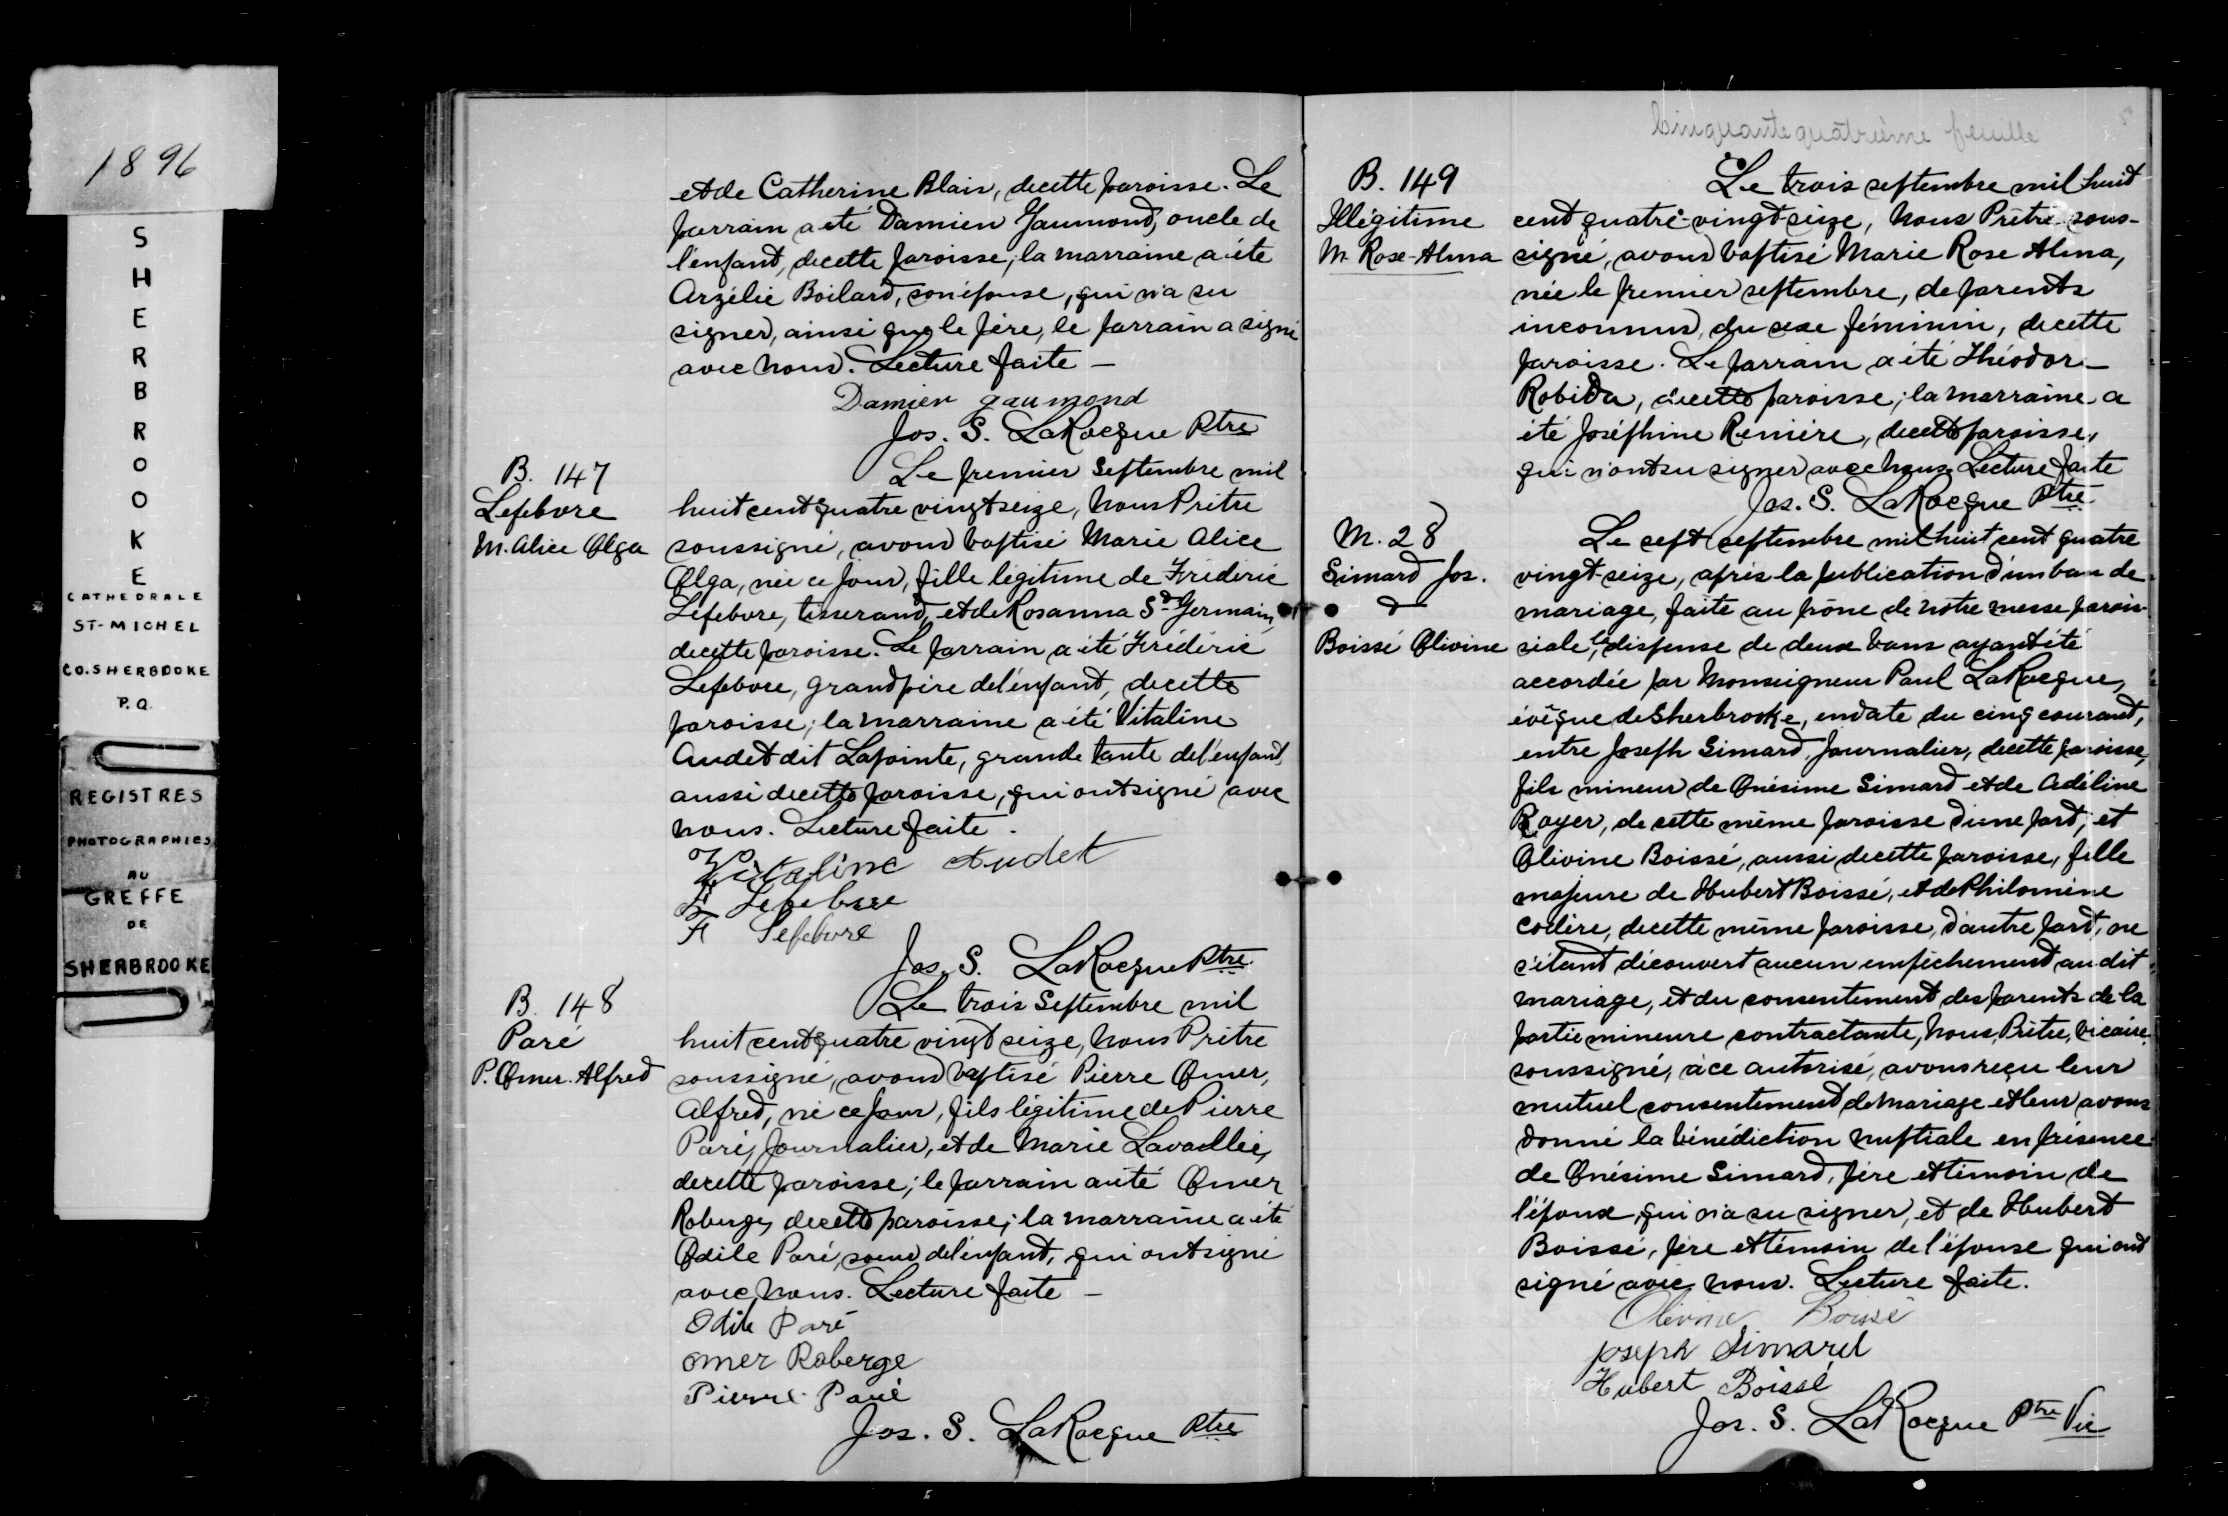 1896
S
H
E
R
B
R
O
O
K
E
CATHEDRALE
ST-MICHEL
CO. SHERBROOKE
P.Q.
REGISTRES
PHOTOGRAPHIES
AU
GREFFE
DE
SHERBROOKE
et de Catherine Blais, de cette paroisse. Le
parrain a été Damien Gaumond, oncle de
l'enfant, de cette paroisse, la marraine a été
Arzélie Boilard, son épouse, qui n'a su
signer, ainsi que le père, le parrain a signé
avec nous. Lecture faite —
Damien gaumond
Jos. S. LaRocque Ptre
B. 147
Lefebvre
M. Alice Olga
Le premier Septembre mil
huit cent quatre vingt seize, Nous Prêtre
soussigné, avons baptisé Marie Alice
Olga, née ce jour, fille légitime de Frédéric
Lefebvre, tisserand, et de Rosanna St Germain,
de cette paroisse. Le parrain a été Frédéric
Lefebvre, grand père de l'enfant, de cette
paroisse; la marraine a été Vitaline
Audet dit Lapointe, grande tante de l'enfant,
aussi de cette paroisse, qui ont signé avec
nous. Lecture faite.
Vitaline Audet
F Lefebvre
F Lefebvre
Jos. S. LaRocque Ptre
B. 148
Paré
P. Omer. Alfred
Le trois Septembre mil
huit cent quatre vingt seize, Nous Prêtre
soussigné, avons baptisé Pierre Omer,
Alfred, né ce jour, fils légitime de Pierre
Paré, Journalier, et de Marie Lavallée,
de cette paroisse; le parrain a été Omer
Roberge, de cette paroisse; la marraine a été
Odile Paré, soeur de l'enfant, qui ont signé
avec Nous. Lecture faite —
Odile Paré
omer Roberge
Pierre Paré
Jos. S. LaRocque Ptre
Cinquante quatrième feuille
B. 149
Illégitime
M. Rose-Alma
Le trois septembre mil huit
cent quatre-vingt seize, Nous Prêtre sous-
signé, avons baptisé Marie Rose Alma,
née le premier septembre, de parents
inconnus, du sexe féminin, de cette
paroisse. Le parrain a été Théodor
Robida, de cette paroisse; la marraine a
été Joséphine Renière, de cette paroisse,
qui n'ont su signer avec nous. Lecture faite
Jos. S. LaRocque Ptre
M. 28
Simard Jos.
&
Boissé Olivine
Le sept septembre mil huit cent quatre
vingt-seize, après la publication d'un ban de
mariage, faite au prône de notre messe parois-
siale, la dispense de deux bans ayant été
accordée par Monseigneur Paul LaRocque,
évêque de Sherbrooke, en date du cinq courant,
entre Joseph Simard, Journalier, de cette paroisse,
fils mineur de Onésime Simard et de Adéline
Royer, de cette même paroisse d'une part; et
Olivine Boissé, aussi de cette paroisse, fille
majeure de Hubert Boissé, et de Philomène
Codère, de cette même paroisse, d'autre part, ne
s'étant découvert aucun empêchement au dit
mariage, et du consentement des parents de la
partie mineure contractante, Nous, Prêtre, Vicaire
soussigné, à ce autorisé, avons reçu leur
mutuel consentement de mariage et leur avons
donné la bénédiction nuptiale en présence
de Onésime Simard, père et témoin de
l'époux, qui n'a su signer, et de Hubert
Boissé, père et témoin de l'épouse qui ont
signé avec nous. Lecture faite.
Olivine Boissé
Joseph Simard
Hubert Boissé
Jos. S. LaRocque Ptre Vic